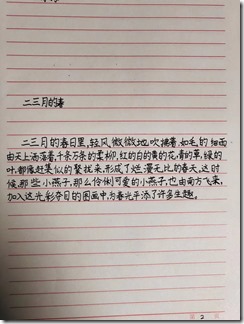 二三月的春
二三月的春日里,轻风微微地吹拂着,如毛的细雨
由天上洒落着,千条万条的柔柳,红的白的黄的花,青的草,绿的
叶,都像赶集似的聚拢来,形成了烂漫无比的春天,这时
候,那些小燕子,那么伶俐可爱的小燕子,也由南方飞来,
加入这光彩夺目的图画中,为春光平添了许多生趣。
2